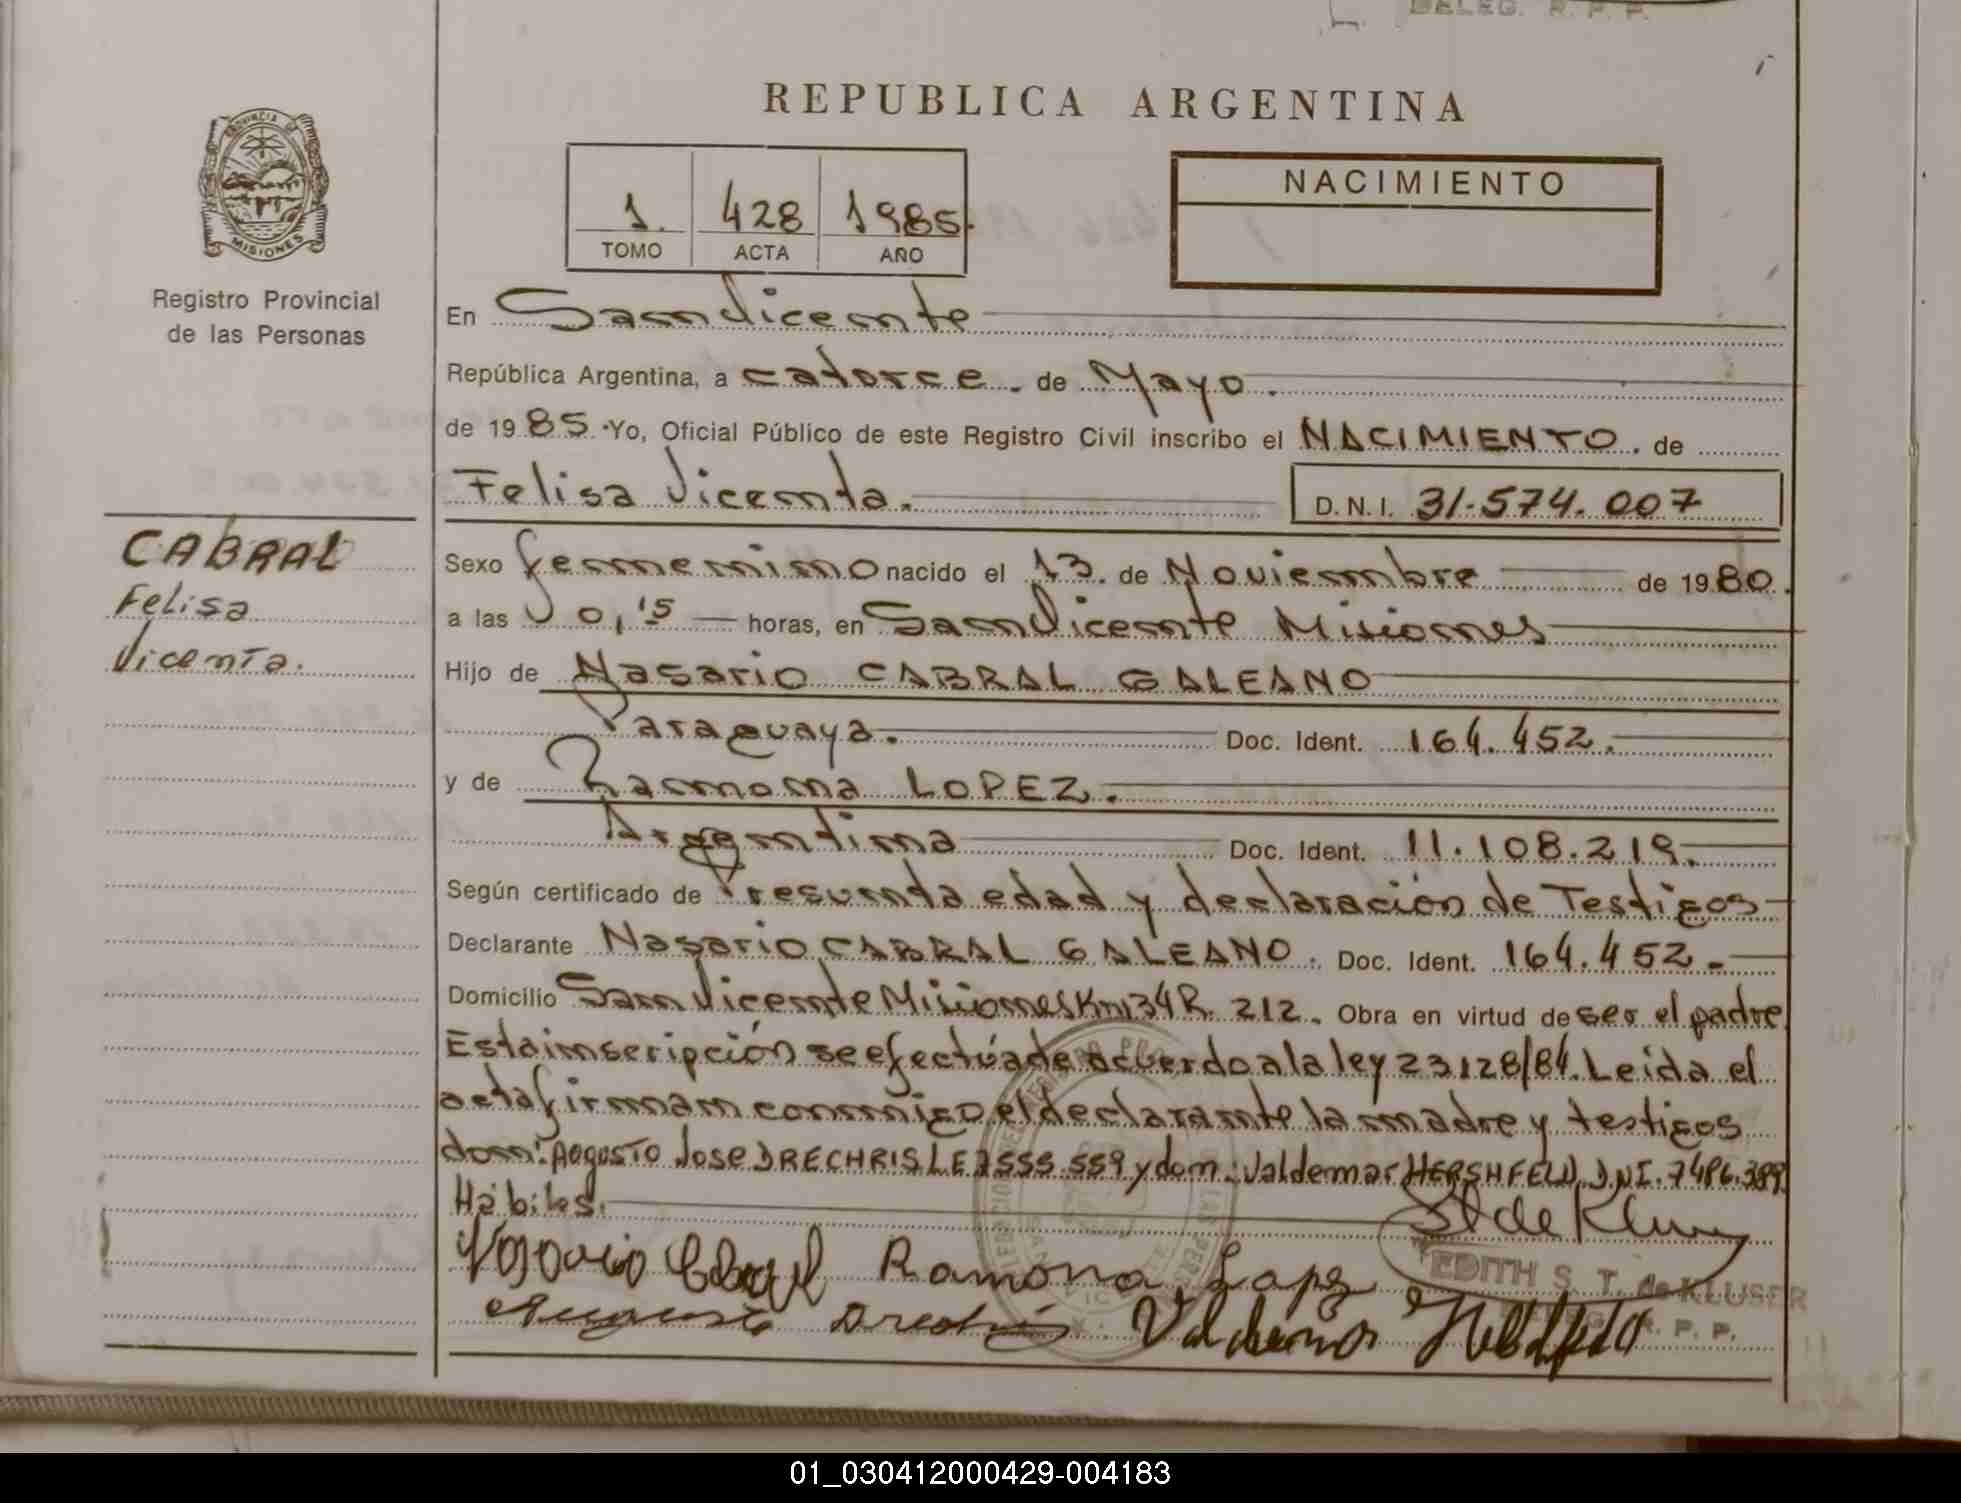 DELEG. R. P. P.
REPUBLICA ARGENTINA
PROVINCIA DE
MISIONES
Registro Provincial
de las Personas
1. 428 1985.
TOMO ACTA AÑO
NACIMIENTO
En San Vicente
República Argentina, a catorce. de Mayo.
de 1985. Yo, Oficial Público de este Registro Civil inscribo el NACIMIENTO. de
Felisa Vicenta.
D.N.I. 31.574.007
CABRAL
Felisa
Vicenta.
Sexo femenino nacido el 13. de Noviembre de 1980.
a las 0,15 horas, en San Vicente Misiones
Hijo de Nasario CABRAL GALEANO
Paraguaya. Doc. Ident. 164.452.
y de Ramona LOPEZ.
Argentina Doc. Ident. 11.108.219.
Según certificado de Presunta edad y declaración de Testigos
Declarante Nasario CABRAL GALEANO. Doc. Ident. 164.452.
Domicilio San Vicente Misiones Km 34 R. 212. Obra en virtud de ser el padre
Esta inscripción se efectúa de acuerdo a la ley 23128/84. Leida el
acta firman conmigo el declarante la madre y testigos
don: Augusto Jose DRECHRIS LE 7555.559 y don: Valdemar HERSHFELD D.N.I. 7486.389.
Hábiles.
St de Kluser
Ramona Lopez
EDITH S. T. de KLUSER
R. P. P.
01_030412000429-004183